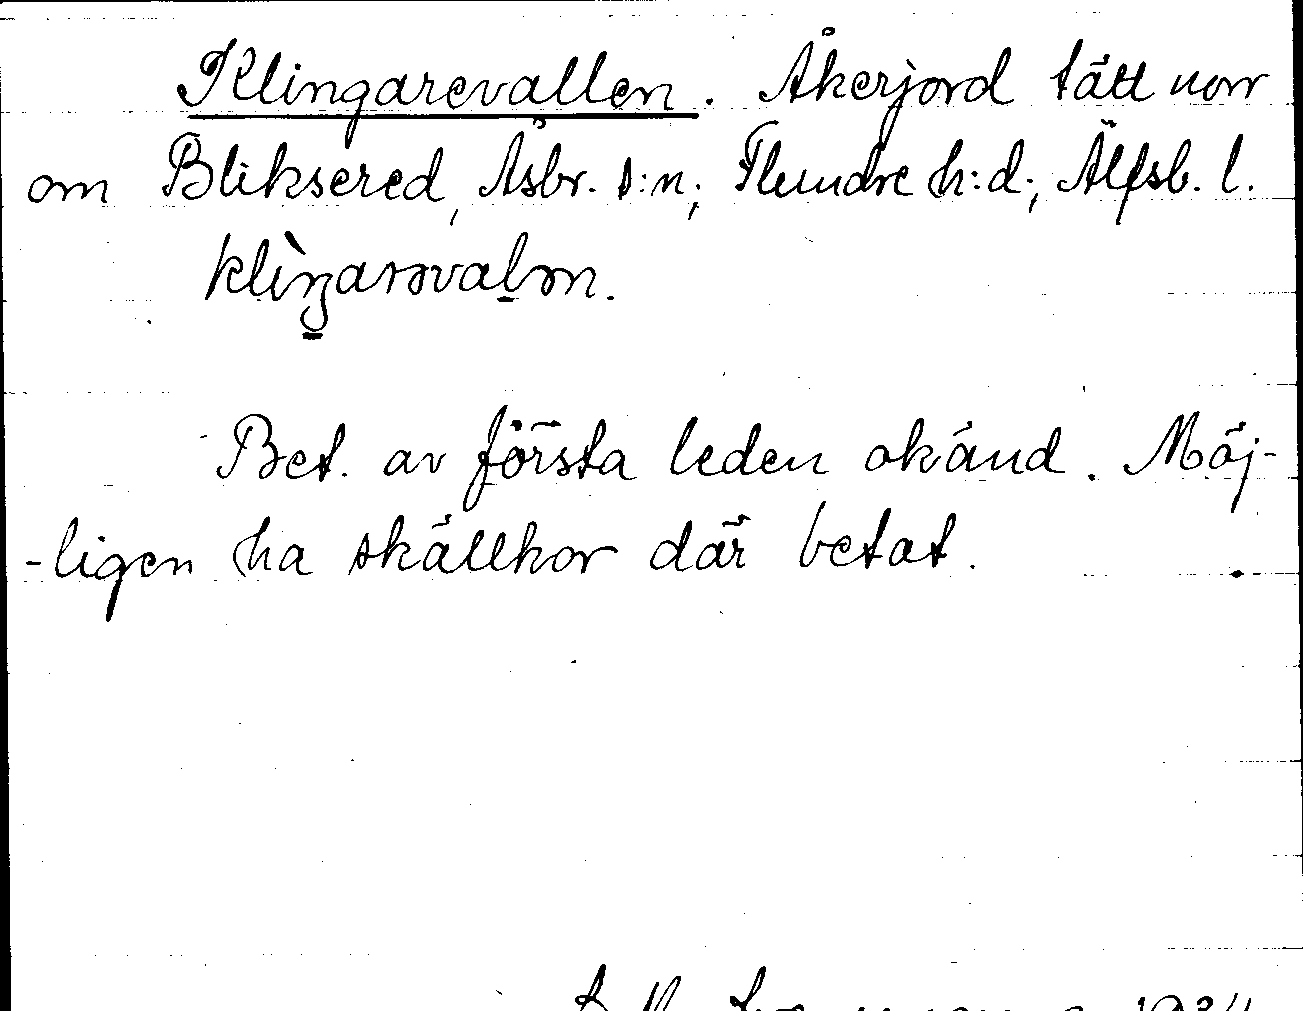 Klingarevallen. Åkerjord tätt norr
om Bliksered, Åsbr. s:n; Flundre h:d; Älfsb. l.
klìŋarəvalən.
Bet. av första leden okänd. Möj-
-ligen ha skällkor där betat.
1934